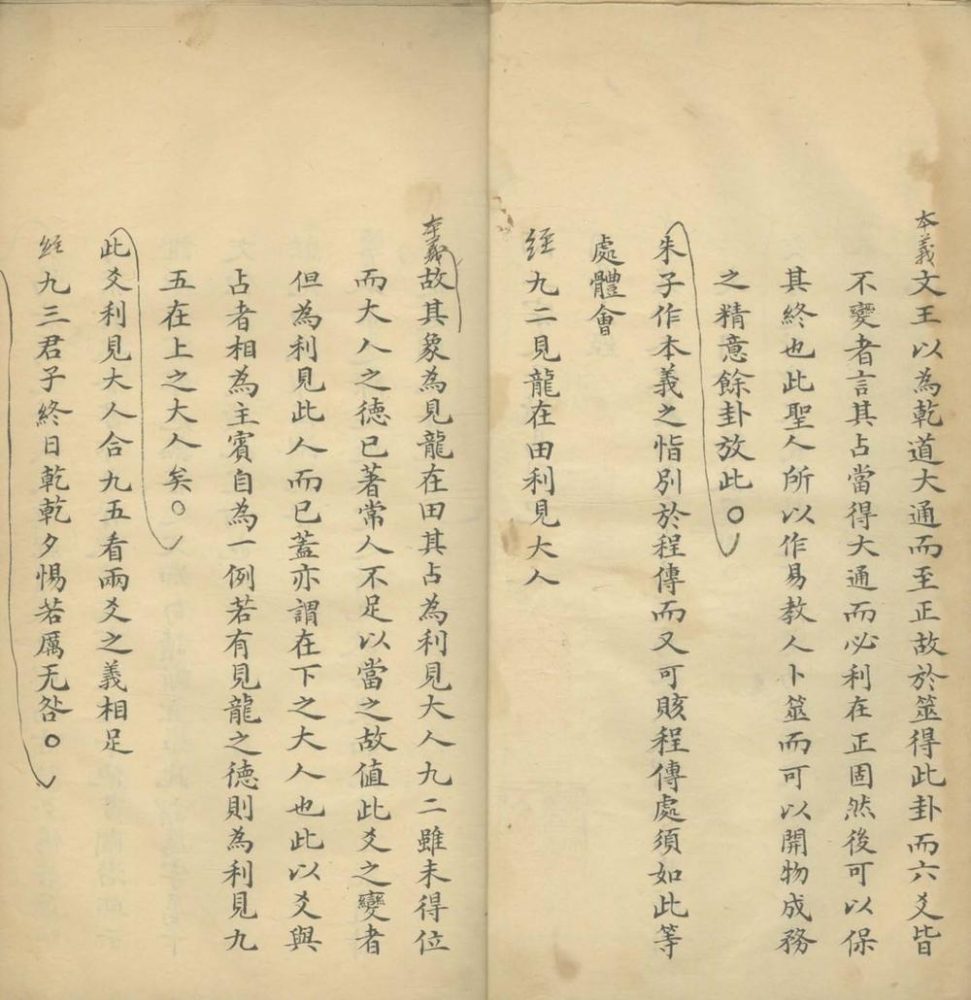 本義文王以為乾道大通而至正故於筮得此卦而六爻皆
不變者言其占當得大通而必利在正固然後可以保
其終也此聖人所以作易教人卜筮而可以開物成務
之精意餘卦放此○
朱子作本義之恉別於程傳而又可賅程傳處須如此等
處體會
經九二見龍在田利見大人
本義故其象為見龍在田其占為利見大人九二雖未得位
而大人之德已著常人不足以當之故值此爻之變者
但為利見此人而已蓋亦謂在下之大人也此以爻與
占者相為主賓自為一例若有見龍之德則為利見九
五在上之大人矣○
此爻利見大人合九五看兩爻之義相足
經九三君子終日乾乾夕惕若厲无咎○